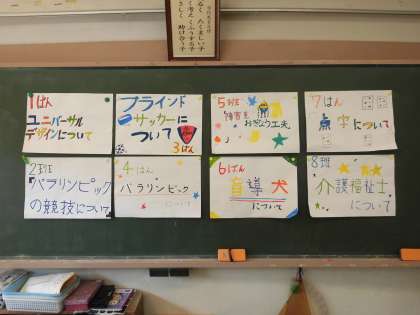 1ぱん
ユニバーサル
デザインについて
ブラインド
サッカーに
ついて
3ぱん
5班
7はん
点字について
2班
パラリンピック
の競技について
4はん
パラリンピック
6ぱん
盲導犬
について
8班
介護福祉士
について